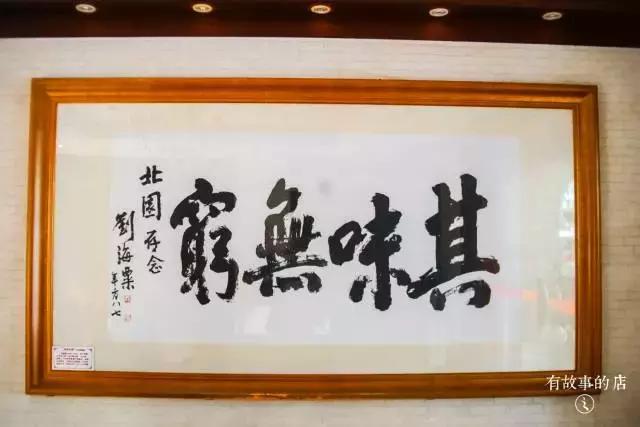 其味無窮
北園存念
劉海粟
年方八七
有故事的店